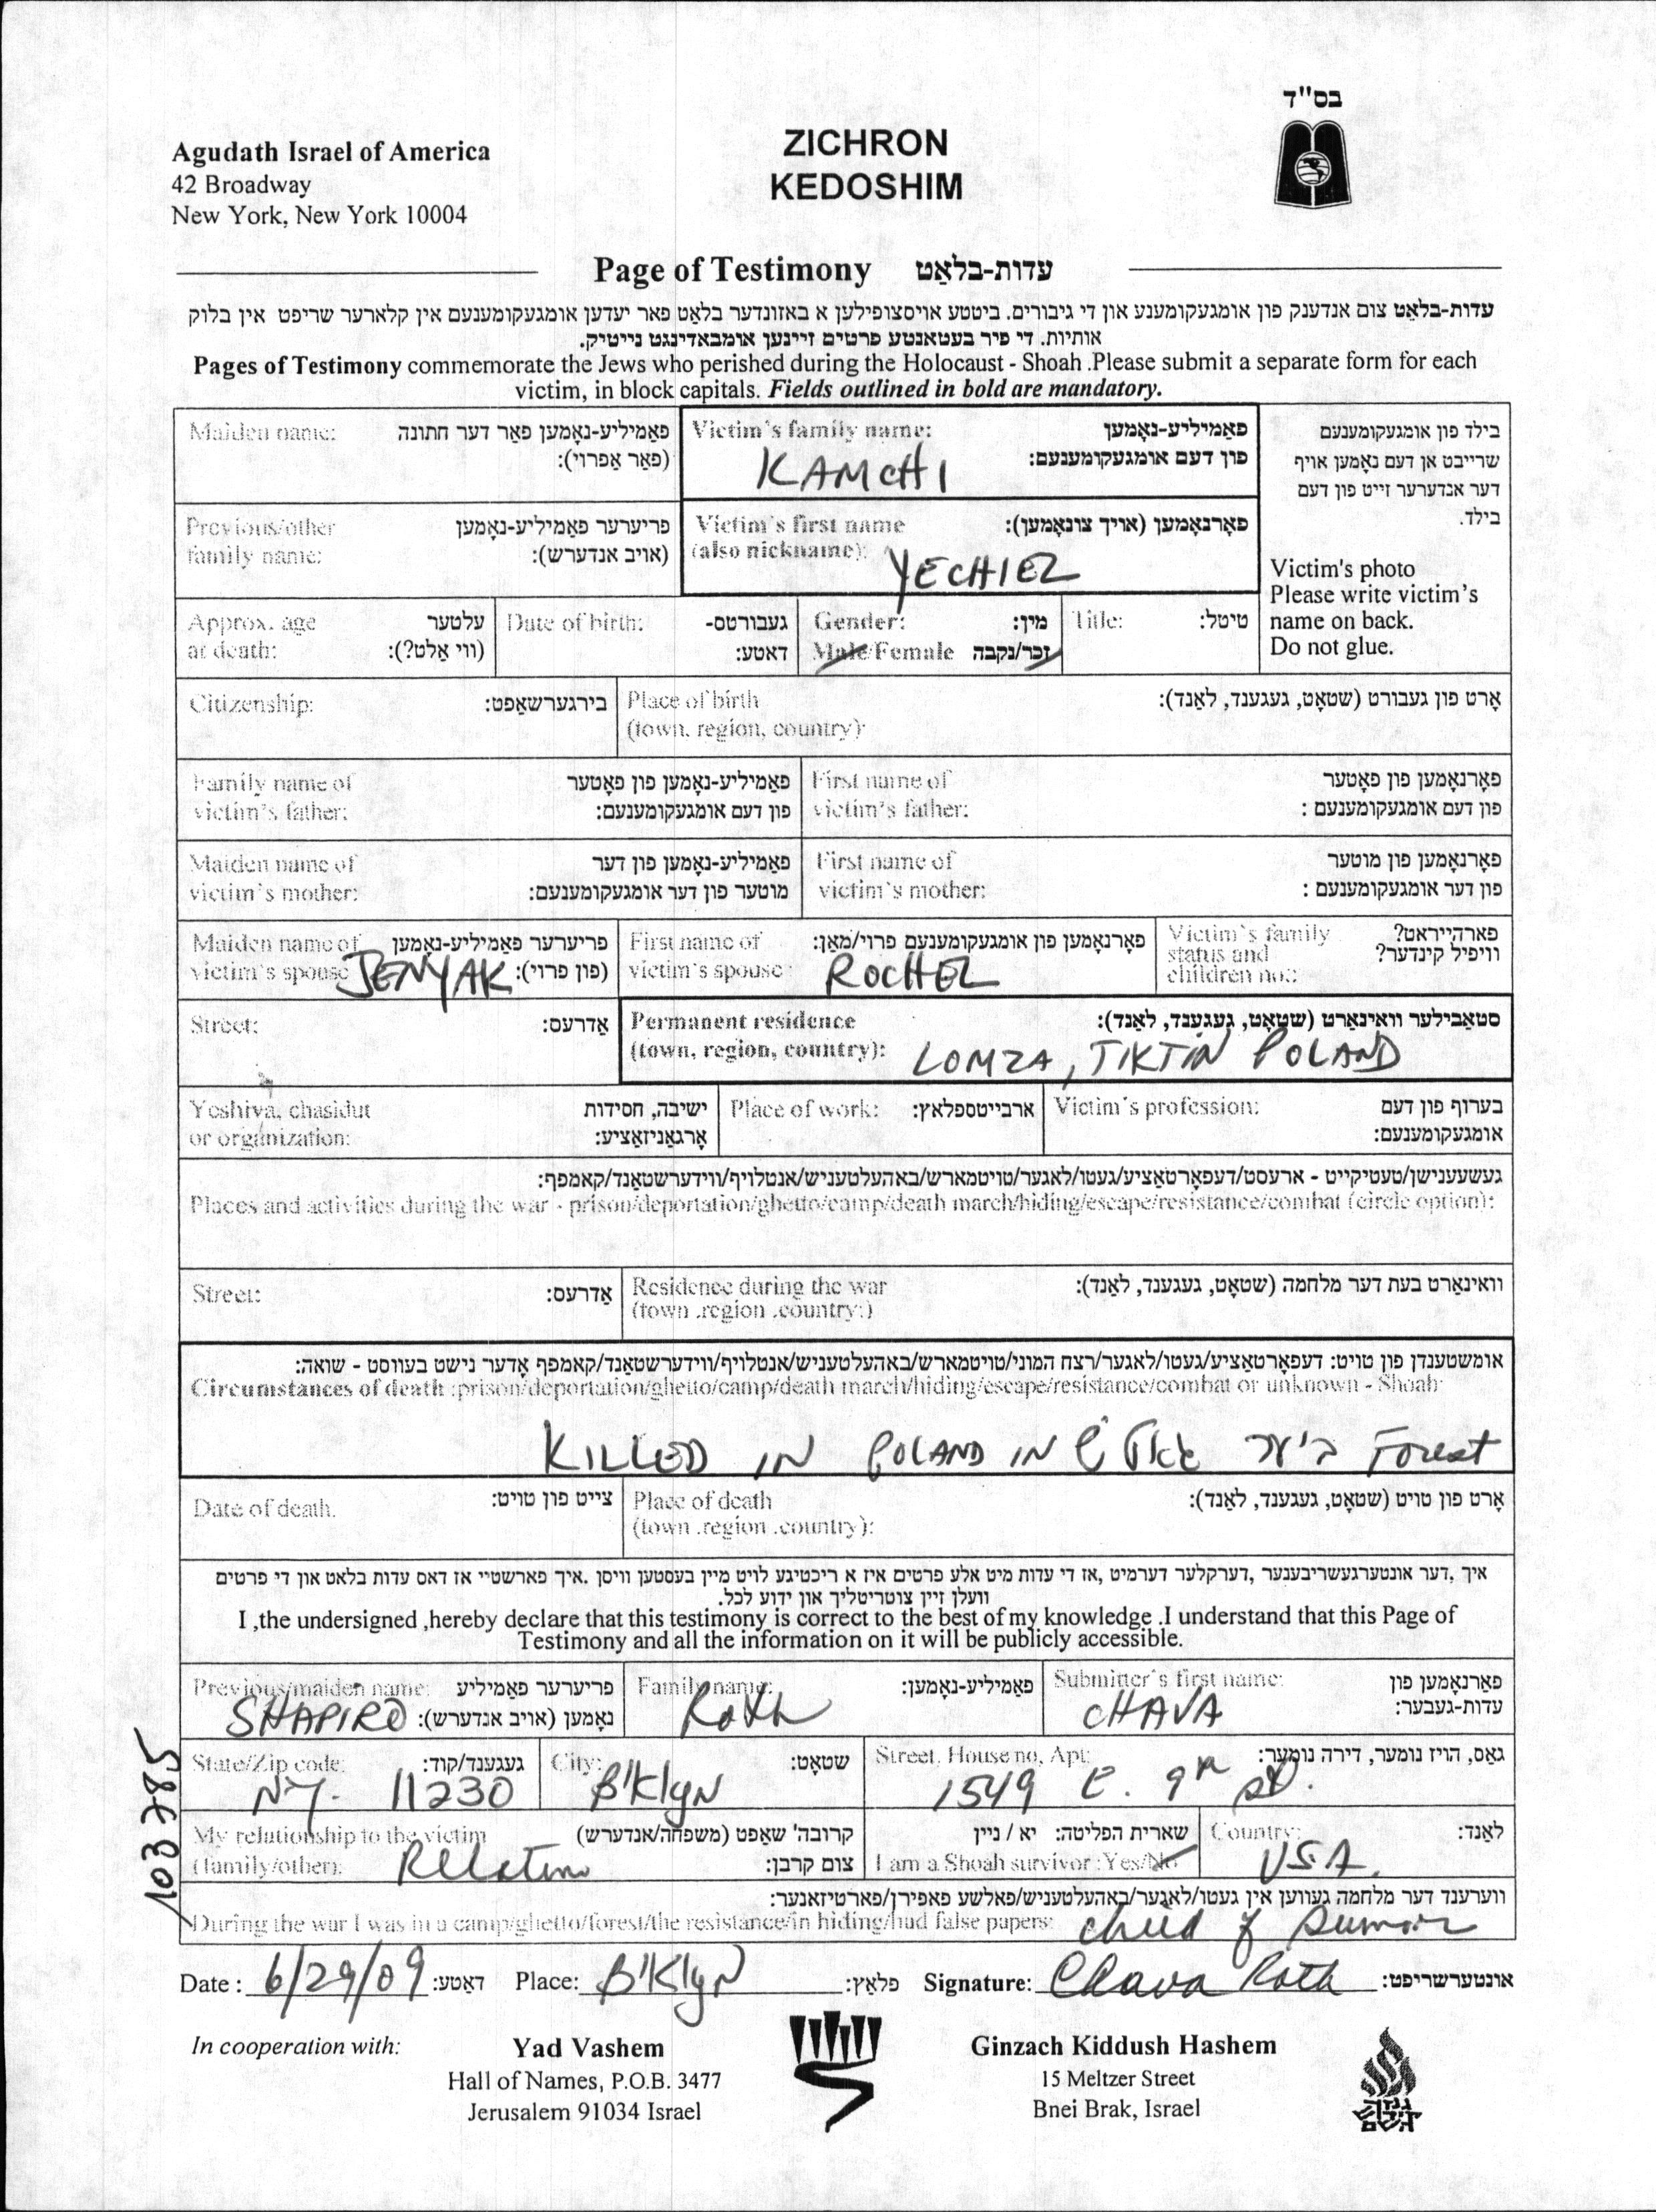 בס"ד
Agudath Israel of America
42 Broadway
New York, New York 10004
ZICHRON
KEDOSHIM
Page of Testimony עדות-בלאַט
עדות-בלאַט צום אנדענק פון אומגעקומענע און די גיבורים. ביטטע אויסצופילען א באזונדער בלאַט פאר יעדען אומגעקומענעם אין קלארער שריפט אין בלוק
אותיות. די פיר בעטאנטע פרטים זיינען אומבאדינגט נייטיק.
Pages of Testimony commemorate the Jews who perished during the Holocaust - Shoah .Please submit a separate form for each
victim, in block capitals. Fields outlined in bold are mandatory.
Maiden name: פאַמיליע-נאָמען פאַר דער חתונה
(פאַר אַפרוי):
Victim's family name: פאַמיליע-נאָמען
פון דעם אומגעקומענעם:
KAMCHI
בילד פון אומגעקומענעם
שרייבט אן דעם נאָמען אויף
דער אנדערער זייט פון דעם
בילד.
Victim's photo
Please write victim's
name on back.
Do not glue.
Previous/other פריערער פאַמיליע-נאָמען
family name: (אויב אנדערש):
Victim's first name פאָרנאָמען (אויך צונאָמען):
(also nickname): YECHIEL
Approx. age עלטער
at death: (ווי אַלט?):
Date of birth: געבורטס-
דאַטע:
Gender: מין:
Male/Female זכר/נקבה
Title: טיטל:
Citizenship: בירגערשאַפט:
Place of birth אָרט פון געבורט (שטאָט, געגענד, לאַנד):
(town, region, country):
Family name of פאַמיליע-נאָמען פון פאָטער
victim's father: פון דעם אומגעקומענעם:
First name of פאָרנאָמען פון פאָטער
victim's father: פון דעם אומגעקומענעם :
Maiden name of פאַמיליע-נאָמען פון דער
victim's mother: מוטער פון דער אומגעקומענעם:
First name of פאָרנאָמען פון מוטער
victim's mother: פון דער אומגעקומענעם :
Maiden name of פריערער פאַמיליע-נאָמען
victim's spouse JENYAK (פון פרוי):
First name of פאָרנאָמען פון אומגעקומענעם פרוי/מאַן:
victim's spouse: ROCHEL
Victim's family פארהייראט?
status and וויפיל קינדער?
children no.:
Street: אַדרעס:
Permanent residence סטאַבילער וואינאָרט (שטאָט, געגענד, לאַנד):
(town, region, country): LOMZA, TIKTIN POLAND
Yeshiva, chasidut ישיבה, חסידות
or organization: אָרגאַניזאַציע:
Place of work: ארבייטספּלאץ:
Victim's profession: בערוף פון דעם
אומגעקומענעם:
געשעענישן/טעטיקייט - ארעסט/דעפּאָרטאַציע/געטו/לאגער/טויטמארש/באהעלטעניש/אנטלויף/ווידערשטאַנד/קאמפף:
Places and activities during the war - prison/deportation/ghetto/camp/death march/hiding/escape/resistance/combat (circle option):
Street: אַדרעס:
Residence during the war וואינאַרט בעת דער מלחמה (שטאָט, געגענד, לאַנד):
(town .region .country:)
אומשטענדן פון טויט: דעפּאָרטאַציע/געטו/לאגער/רצח המוני/טויטמארש/באהעלטעניש/אנטלויף/ווידערשטאַנד/קאמפף אָדער נישט בעוווסט - שואה:
Circumstances of death :prison/deportation/ghetto/camp/death march/hiding/escape/resistance/combat or unknown - Shoah:
KILLED IN POLAND IN Forest
Date of death. צייט פון טויט:
Place of death אָרט פון טויט (שטאָט, געגענד, לאַנד):
(town .region .country):
איך ,דער אונטערגעשריבענער ,דערקלער דערמיט ,אז די עדות מיט אלע פרטים איז א ריכטיגע לויט מיין בעסטען וויסן .איך פארשטיי אז דאס עדות בלאט און די פרטים
וועלן זיין צוטריטליך און ידוע לכל.
I ,the undersigned ,hereby declare that this testimony is correct to the best of my knowledge .I understand that this Page of
Testimony and all the information on it will be publicly accessible.
Previous/maiden name: פריערער פאַמיליע
SHAPIRO נאָמען (אויב אנדערש):
Family name: פאַמיליע-נאָמען:
Roth
Submitter's first name: פאַרנאָמען פון
CHAVA עדות-געבער:
State/Zip code: געגענד/קוד:
NY. 11230
City: שטאָט:
B'Klyn
Street, House no, Apt: גאַס, הויז נומער, דירה נומער:
1549 E. 9th St.
My relationship to the victim קרובה' שאַפט (משפּחה/אנדערש)
(family/other): Relative צום קרבן:
שארית הפליטה: יא / ניין
I am a Shoah survivor :Yes/No
Country: לאַנד:
USA.
ווערענד דער מלחמה געווען אין געטו/לאַגער/באַהעלטעניש/פאַלשע פּאפּירן/פארטיזאנער:
During the war I was in a camp/ghetto/forest/the resistance/in hiding/had false papers: child of survivor
Date : 6/29/09 דאַטע: Place: B'Klyn פּלאַץ: Signature: Chava Roth אונטערשריפט:
103785
In cooperation with:
Yad Vashem
Hall of Names, P.O.B. 3477
Jerusalem 91034 Israel
Ginzach Kiddush Hashem
15 Meltzer Street
Bnei Brak, Israel
גנזך
קידוש
השם